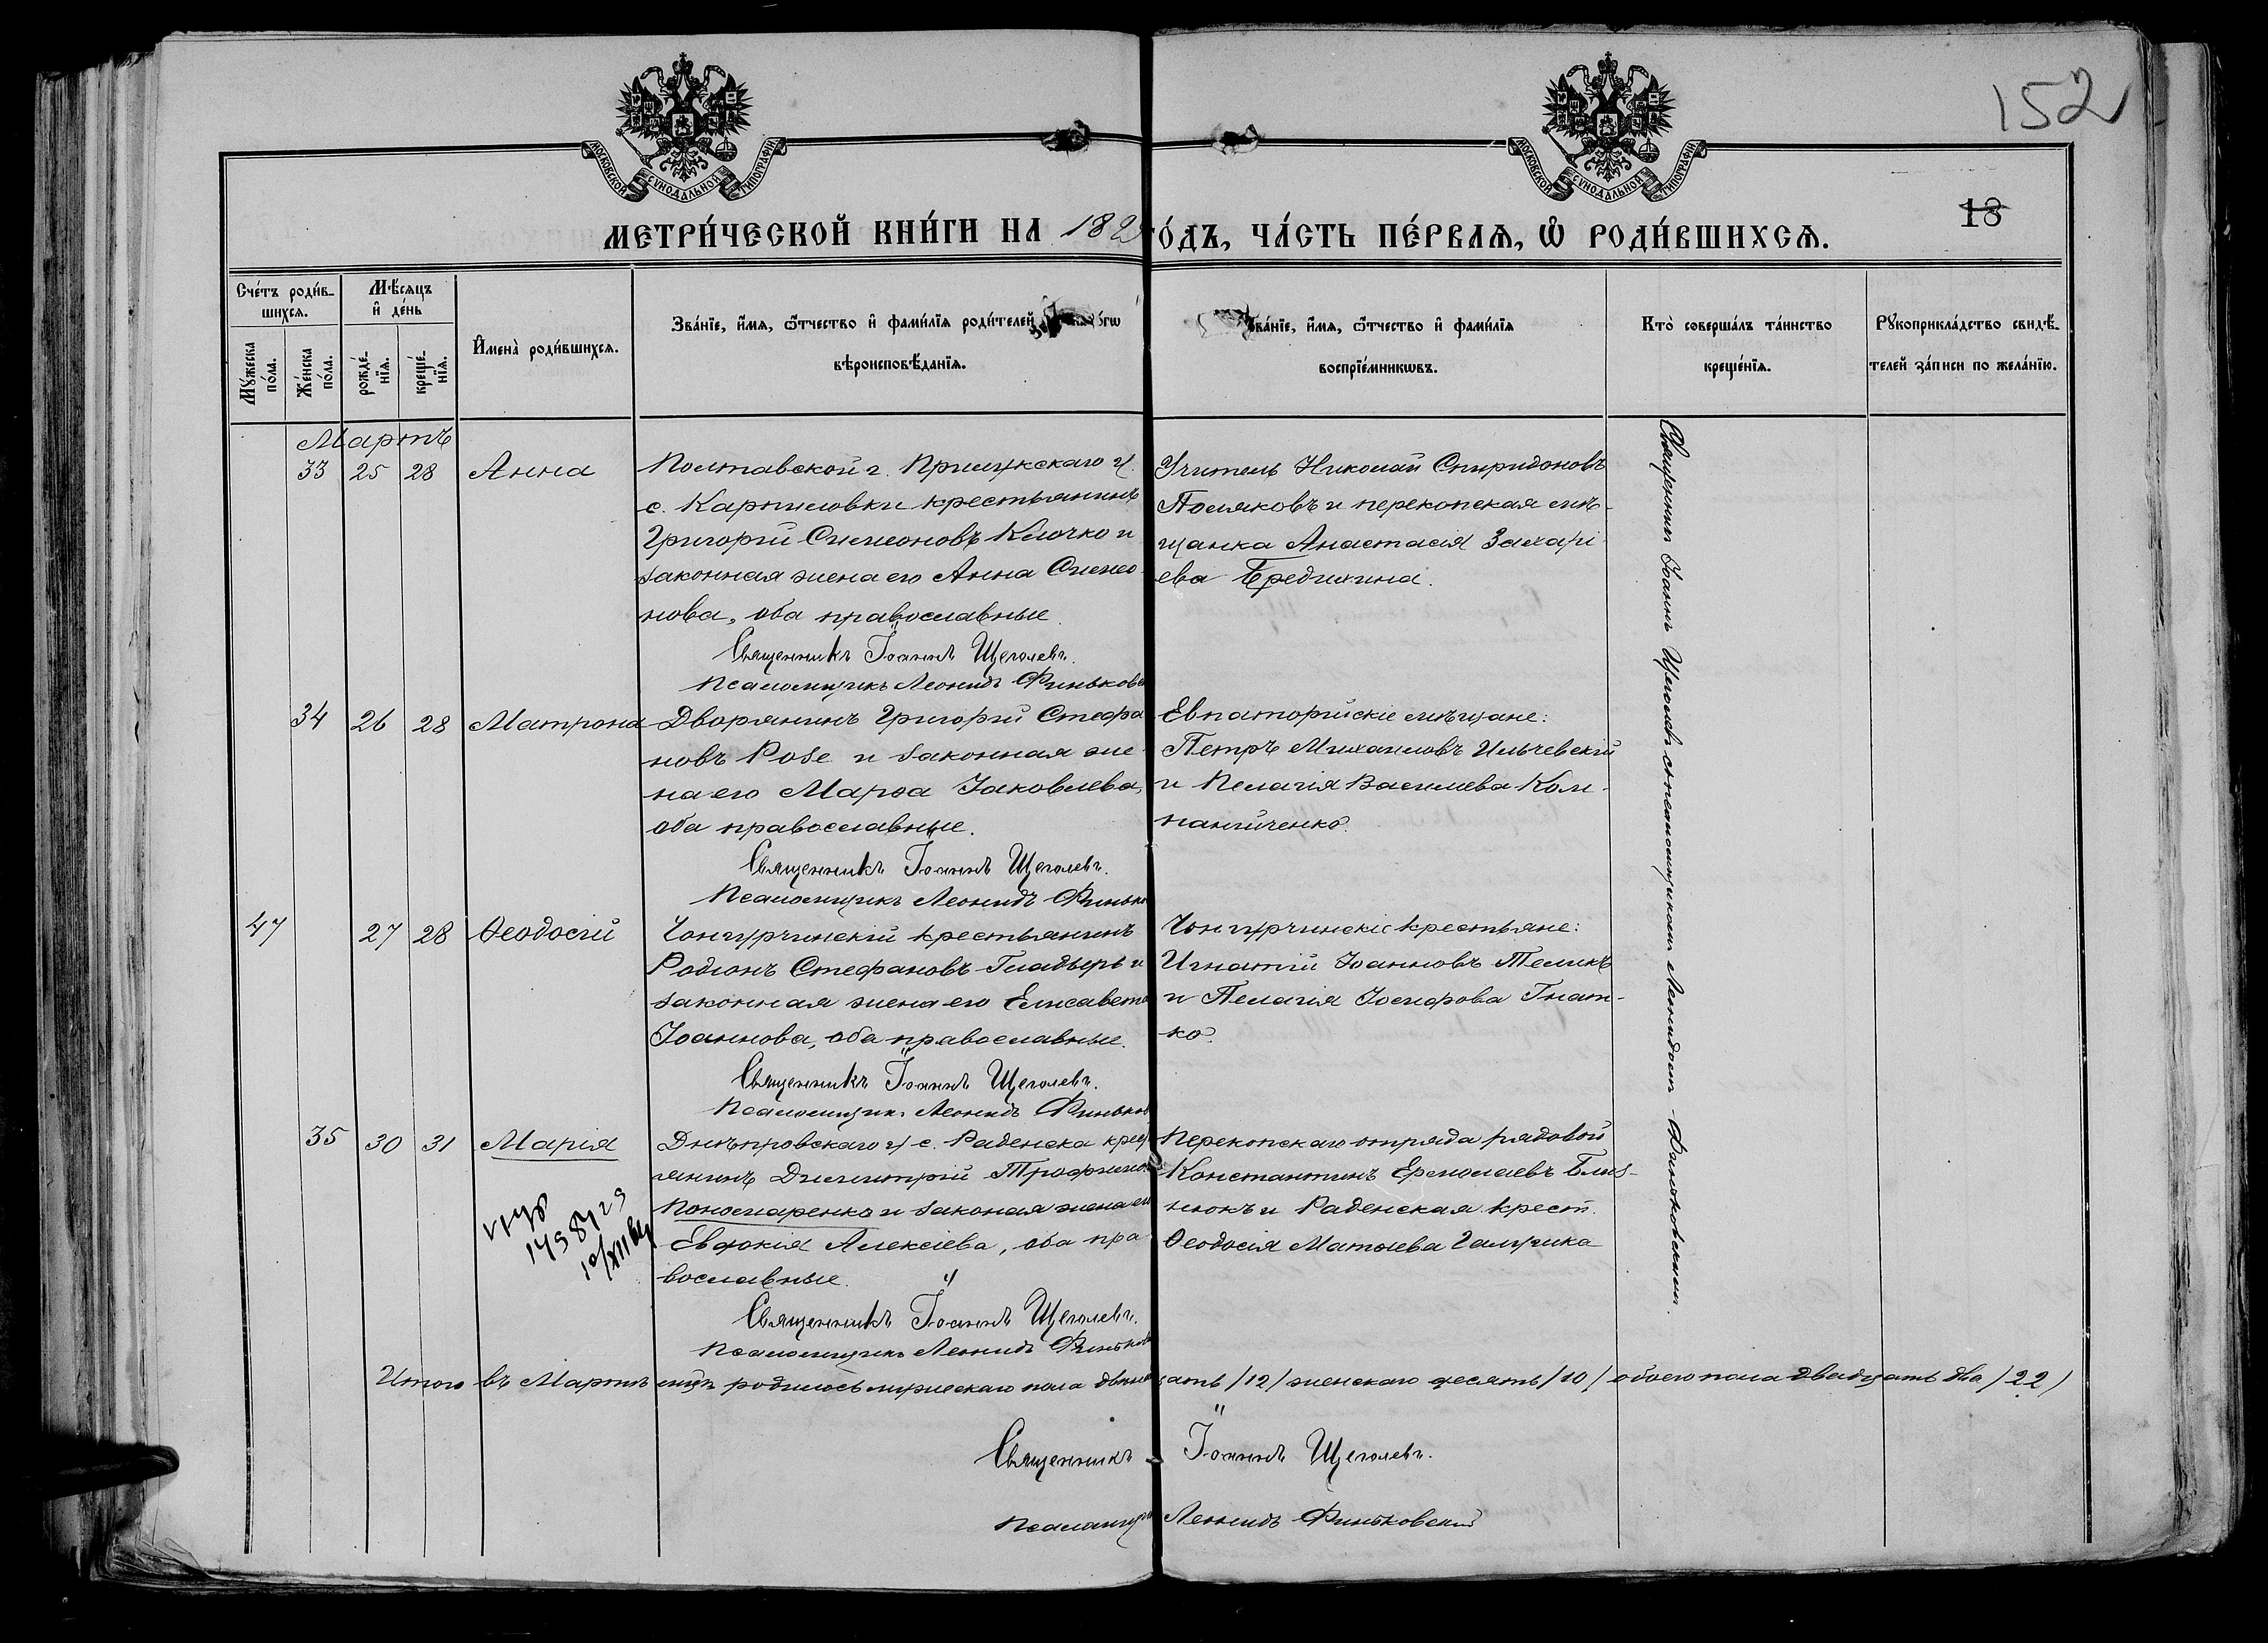 152
МОСКОВСКОЙ СУНОДАЛЬНОЙ ТИПОГРАФІИ
МОСКОВСКОЙ СУНОДАЛЬНОЙ ТИПОГРАФІИ
18
МЕТРИ́ЧЕСКОЙ КНИ́ГИ НА 18 О́ДЪ, ЧА́СТЬ ПЕ́РВАѦ, Ѡ҆ РОДИ́ВШИХСѦ.
Сче́тъ роди́вшихсѧ.
Мѣ́сѧцъ и҆ де́нь
Мꙋ́жеска по́ла.
Же́нска по́ла.
рожде́нїѧ.
креще́нїѧ.
И҆мена̀ роди́вшихсѧ.
Зва́нїе, и҆́мѧ, ѻ҆́тчество и҆ фами́лїѧ роди́телей
вѣроисповѣ́данїѧ.
Зва́нїе, и҆́мѧ, ѻ҆́тчество и҆ фами́лїѧ
воспрїе́мникѡвъ.
Кто̀ соверша́лъ та́инство
креще́нїѧ.
Рꙋкоприкла́дство свидѣ́-
телей за́писи по жела́нїю.
Мартъ
33 25 28 Анна
Полтавской г. Прилукскаго у.
с. Карпиловки крестьянинъ
Григорій Симеоновъ Клочко и
законная жена его Анна Симео-
нова, оба православные.
Священникъ Іоаннъ Щеголевъ.
Псаломщикъ Леонидъ Финьковс
Учитель Николай Спиридоновъ
Поляковъ и перекопская мѣ-
щанка Анастасія Захарі
ева Бредихина.
34 26 28 Матрона
Дворянинъ Григорій Стефа
новъ Розе и законная же-
на его Марѳа Іаковлева,
оба православные.
Священникъ Іоаннъ Щеголевъ.
Псаломщикъ Леонидъ Финьк
Евпаторійскіе мѣщане:
Петръ Михаиловъ Ильчевскій
и Пелагія Васильева Ком-
панійченко.
47 27 28 Ѳеодосій
Чонгурчинскій крестьянинъ
Родіонъ Стефановъ Гладырь и
законная жена его Елисавета
Іоаннова, оба православные.
Священникъ Іоаннъ Щеголевъ.
Псаломщикъ Леонидъ Финьков
Чонгурчинскіе крестьяне:
Игнатій Іоанновъ Теликъ
и Пелагія Іосифова Гнат-
ко.
35 30 31 Марія
Днѣпровскаго у. с. Раденска крест
янинъ Димитрій Трофимов
Пономаренко и законая жена ег
Евдокія Алексіева, оба пра
вославные.
Священникъ Іоаннъ Щеголевъ.
Псаломщикъ Леонидъ Финьков
Перекопскаго отряда рядовой
Константинъ Ермолаевъ Близ-
нюкъ и Раденская крест.
Ѳеодосія Матѳіева Галушка
Священникъ Іоаннъ Щеголевъ съ псаломщикомъ Леонидомъ Финьковскимъ.
Итого въ Мартѣ мцѣ родилось мужескаго пола двѣнадцать /12/ женскаго десять /10/ обоего пола двадцать два /22/
Священникъ Іоаннъ Щеголевъ.
Псаломщикъ Леонидъ Финьковскій